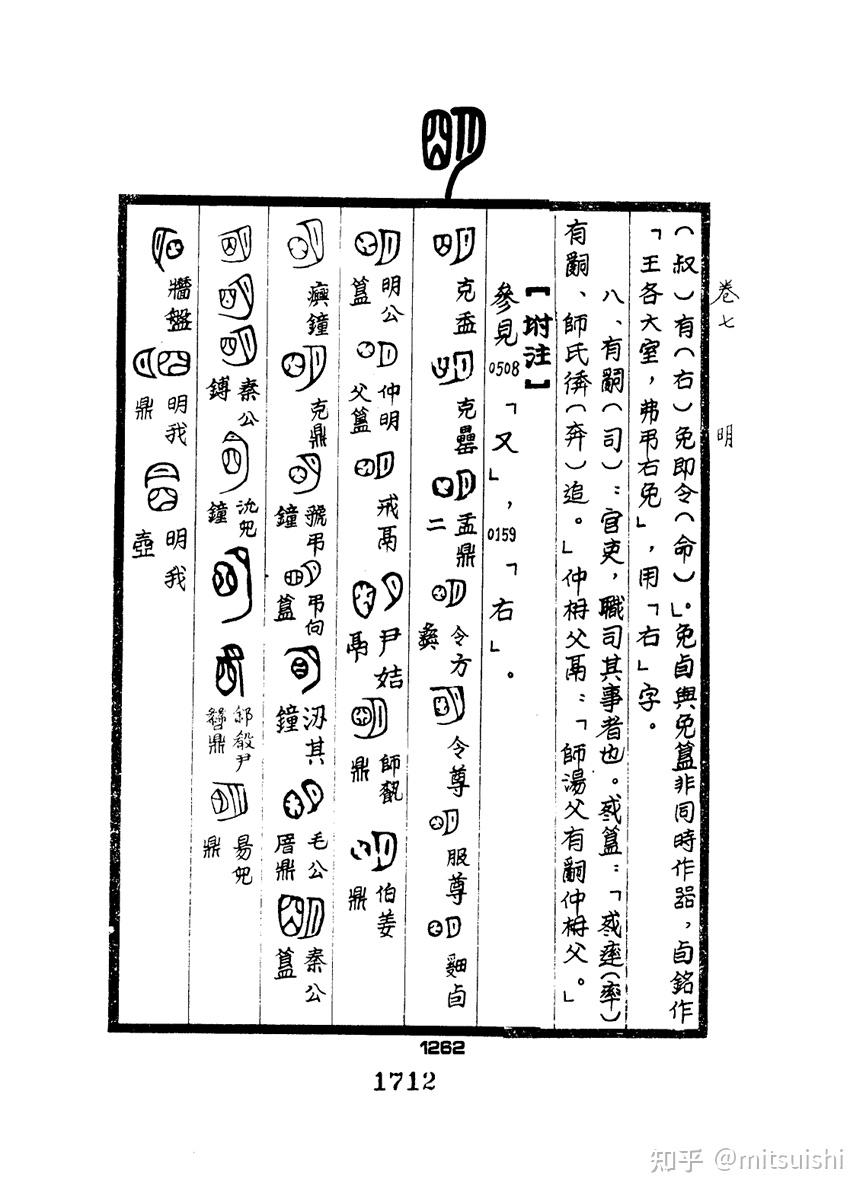 卷七 明
(叔)有(右)免即令(命)」。免卣與免簋非同時作器,卣銘作
「王各大室,弗弔右免」,用「右」字。
八、有嗣(司):官吏,職司其事者也。㦰簋:「㦰達(率)
有嗣、師氏徬(奔)追。」仲枏父鬲:「師湯父有嗣仲枏父。」
【坿注】
參見0508「又」,0159「右」。
克盉 克罍 盂鼎二 令方彝 令尊 服尊 卣
明公簋 仲明父簋 戒鬲 尹姞鬲 師𩛥鼎 伯姜鼎
㾓鐘 克鼎 虢弔鐘 弔向簋 汈其鐘 毛公厝鼎 秦公簋
秦公鎛 沇兒鐘 尹鼎 昜兒鼎
牆盤 明我鼎 明我壺
1262
1712
知乎 @mitsuishi